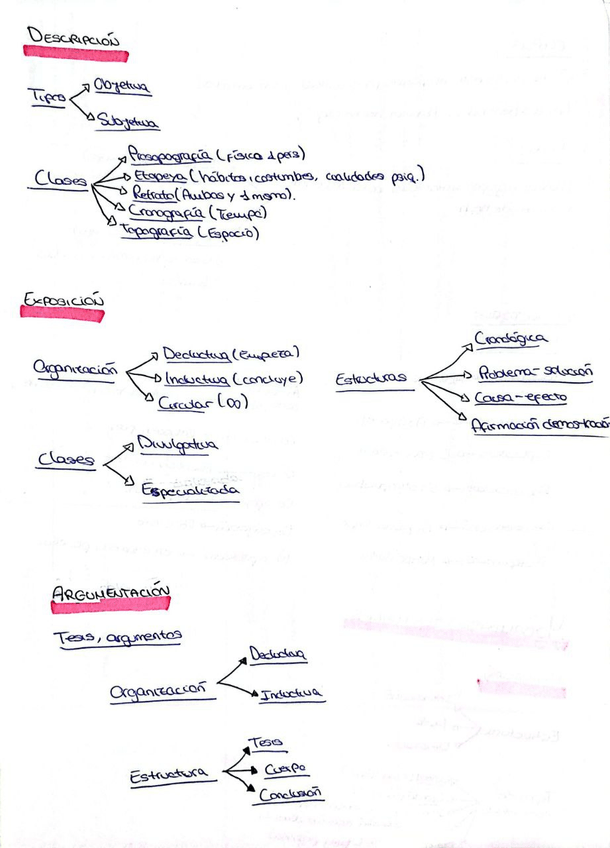 DESCRIPCIÓN
Tipos
Objetiva
Subjetiva
Clases
Prosopografía (Física 1 pers)
Etopeya (hábitos, costumbes, cualidades psiq.)
Retrato (Ambos y 1 mismo).
Cronografía (Tiempo)
Topografía (Espacio)
EXPOSICIÓN
Organización
Deductiva (empieza)
Inductiva (concluye)
Circular (∞)
Estructuras
Cronológica
Problema-solución
Causa-efecto
Afirmación demostració
Clases
Divulgativa
Especializada
ARGUMENTACIÓN
Tesis, argumentos
Organización
Deductiva
Inductiva
Estructura
Tesis
Cuerpo
Conclusión